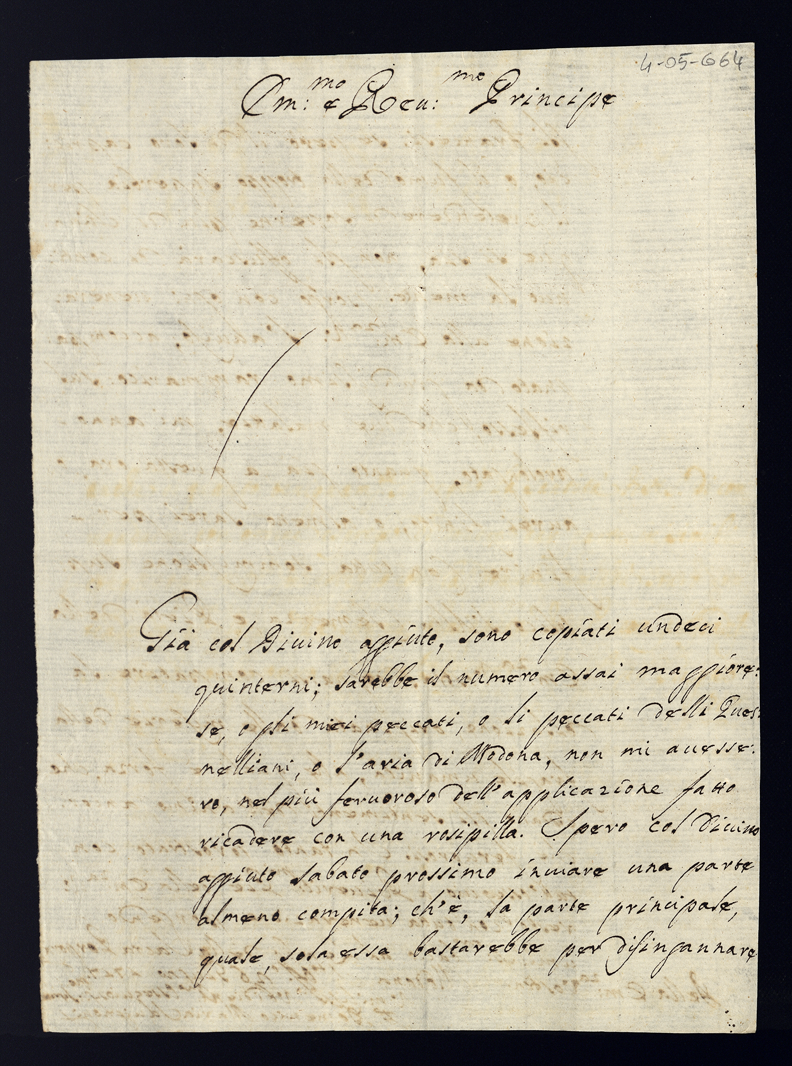 4-05-664
Em:mo e Reu:mo Principe
Già col Diuino aggiuto, sono copiati undeci
quinterni; sarebbe il numero assai maggiore:
se, o gli miei peccati, o li peccati delli Ques:
nelliani, o l'aria di Modona, non mi auesse:
ro, nel più feruoroso dell'applicazione fatto
ricadere con una rosipilla. Spero col Diuino
aggiuto sabato prossimo inuiare una parte
almeno compita; ch'è, la parte principale,
quale, sola essa bastarebbe per disingannare